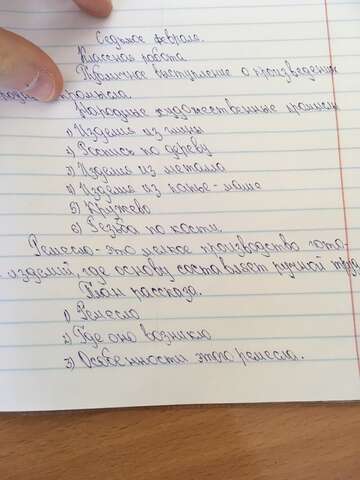 Седьмое февраля.
Классная работа
Публичное выступление о произведении
промысла.
Народные художественные промыслы
1) Изделия из глины
2) Роспись по дереву
3) Изделия из металла
4) Изделия из папье-маше
5) Кружево
6) Резьба по кости.
Ремесло - это мелкое производство гото-
изделий, где основу составляет ручной труд
План рассказа.
1) Ремесло
2) Где оно возникло
3) Особенности этого ремесла.